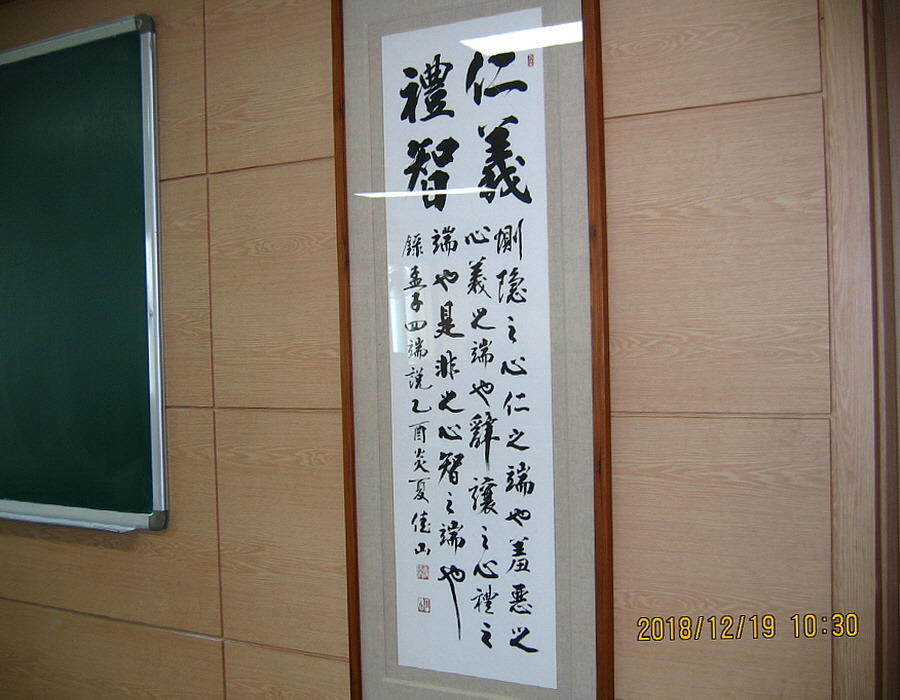 仁義
禮智
惻隐之心仁之端也羞惡之
心義之端也辭讓之心禮之
端也是非之心智之端也
錄孟子四端說乙酉炎夏佳山
2018/12/19 10:30